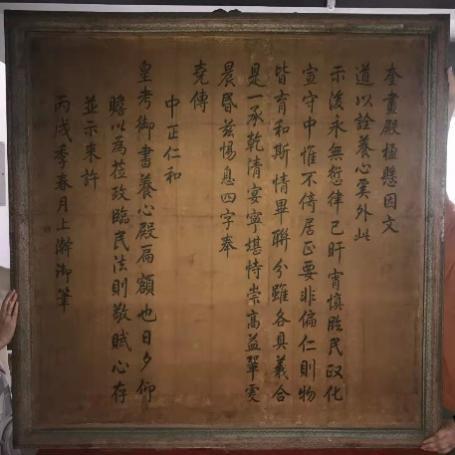 奎畫殿楹懸因文
道以詮養心奚外此
示後永無愆律己旰宵慎臨民政化
宣守中惟不倚居正要非偏仁則物
皆育和斯情畢聯分雖各具義合
是一承乾清宴寧堪恃崇高益鞏虔
晨昏茲惕息四字奉
堯傳
中正仁和
皇考御書養心殿扁額也日夕仰
瞻以為蒞政臨民法則敬賦心存
並示來許
丙戌季春月上澣御筆